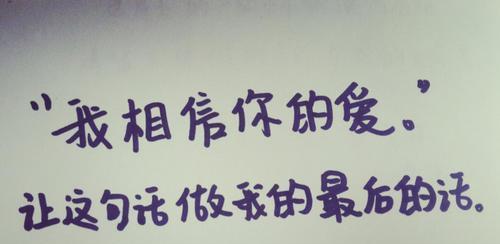 “我相信你的爱。”
让这句话做我的最后的话。